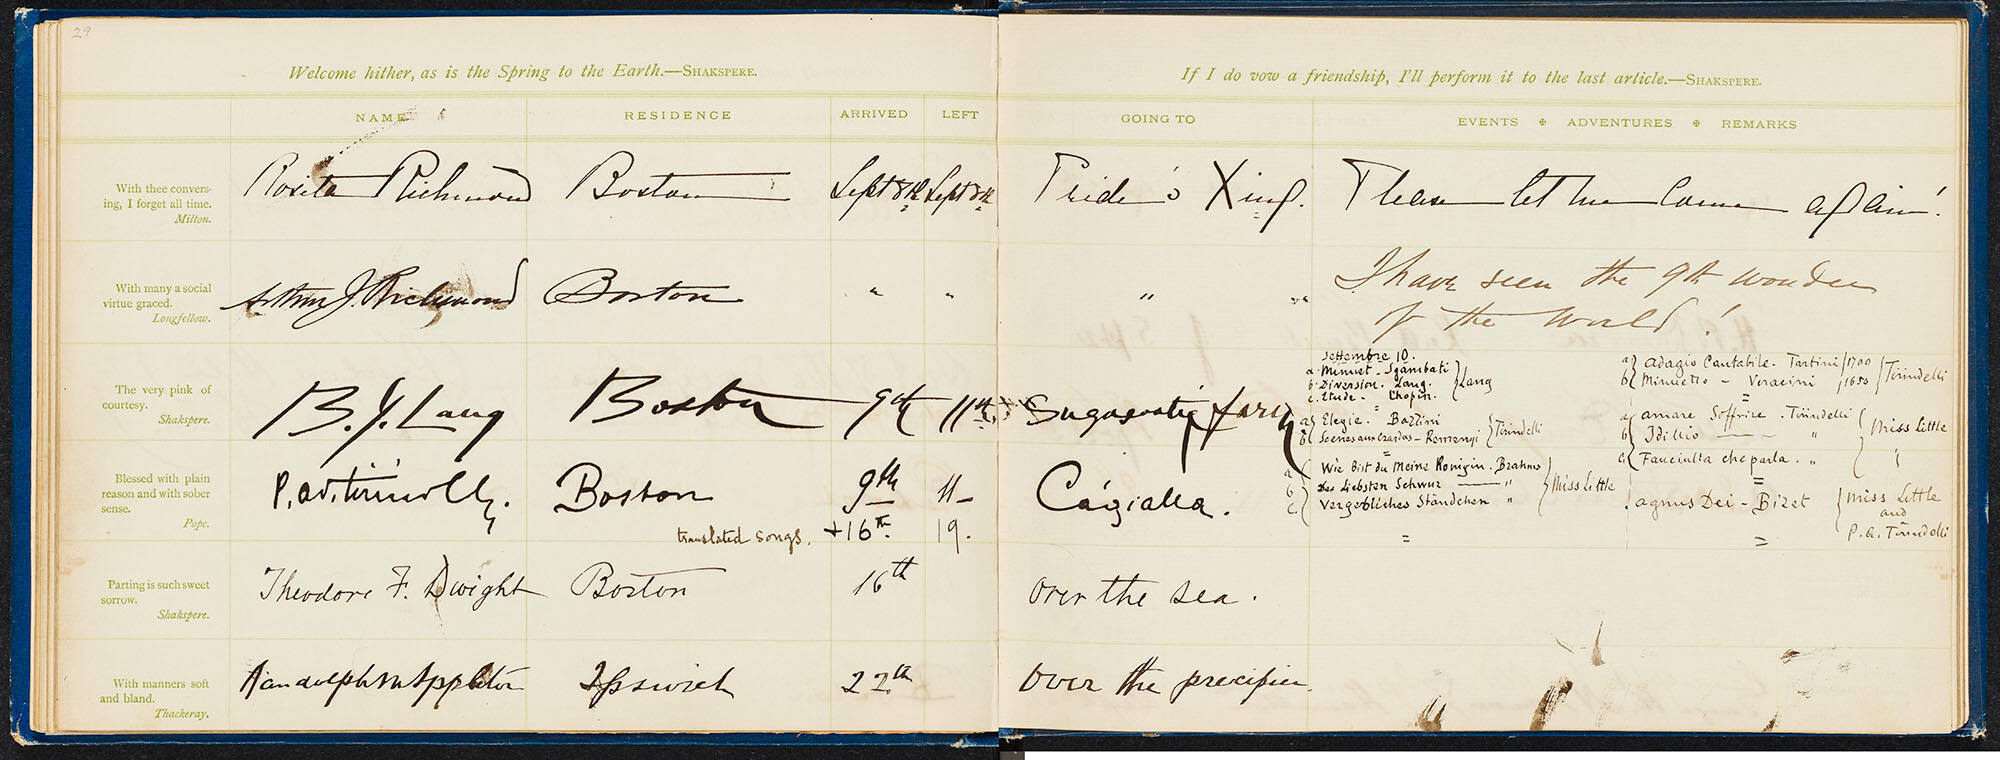 29
Welcome hither, as is the Spring to the Earth.—SHAKSPERE.
NAME RESIDENCE ARRIVED LEFT
With thee convers-
ing, I forget all time.
Milton.
Rosita Richmond Boston Sept 8th Sept 8th
With many a social
virtue graced.
Longfellow.
Arthur J. Richmond Boston " "
The very pink of
courtesy.
Shakspere.
B. J. Lang Boston 9th 11th
Blessed with plain
reason and with sober
sense.
Pope.
P. A. Tirindelli. Boston 9th 11—
translated songs. +16th 19.
Parting is such sweet
sorrow.
Shakspere.
Theodore F. Dwight Boston 16th
With manners soft
and bland.
Thackeray.
Randolph M Appleton Ipswich 22th
If I do vow a friendship, I'll perform it to the last article.—SHAKSPERE.
GOING TO EVENTS ✠ ADVENTURES ✠ REMARKS
Pride's Xing. Please let me come again!
" " I have seen the 9th wonder
of the World!
Settembre 10.
a. Minuet - Sgambati
b. Diversion. Lang.
c. Etude - Chopin.
Lang
a Elegie. Bazzini
b Scenes aux Czardas - Remenyi
Tirindelli
a Wie bist du Meine Konigin. Brahms
b Des Liebsten Schwur — "
c. Vergebliches Ständchen "
Miss Little
=
a Adagio Cantabile - Tartini 1700
b Minuetto - Veracini 1650
Tirindelli
=
a Amare Soffrire. Tirindelli
b Idillio — "
c Fanciulla che parla. "
Miss Little
=
Agnus Dei - Bizet
Miss Little
and
P. A. Tirindelli
=
farm
Cágialla.
over the sea.
over the precipice.